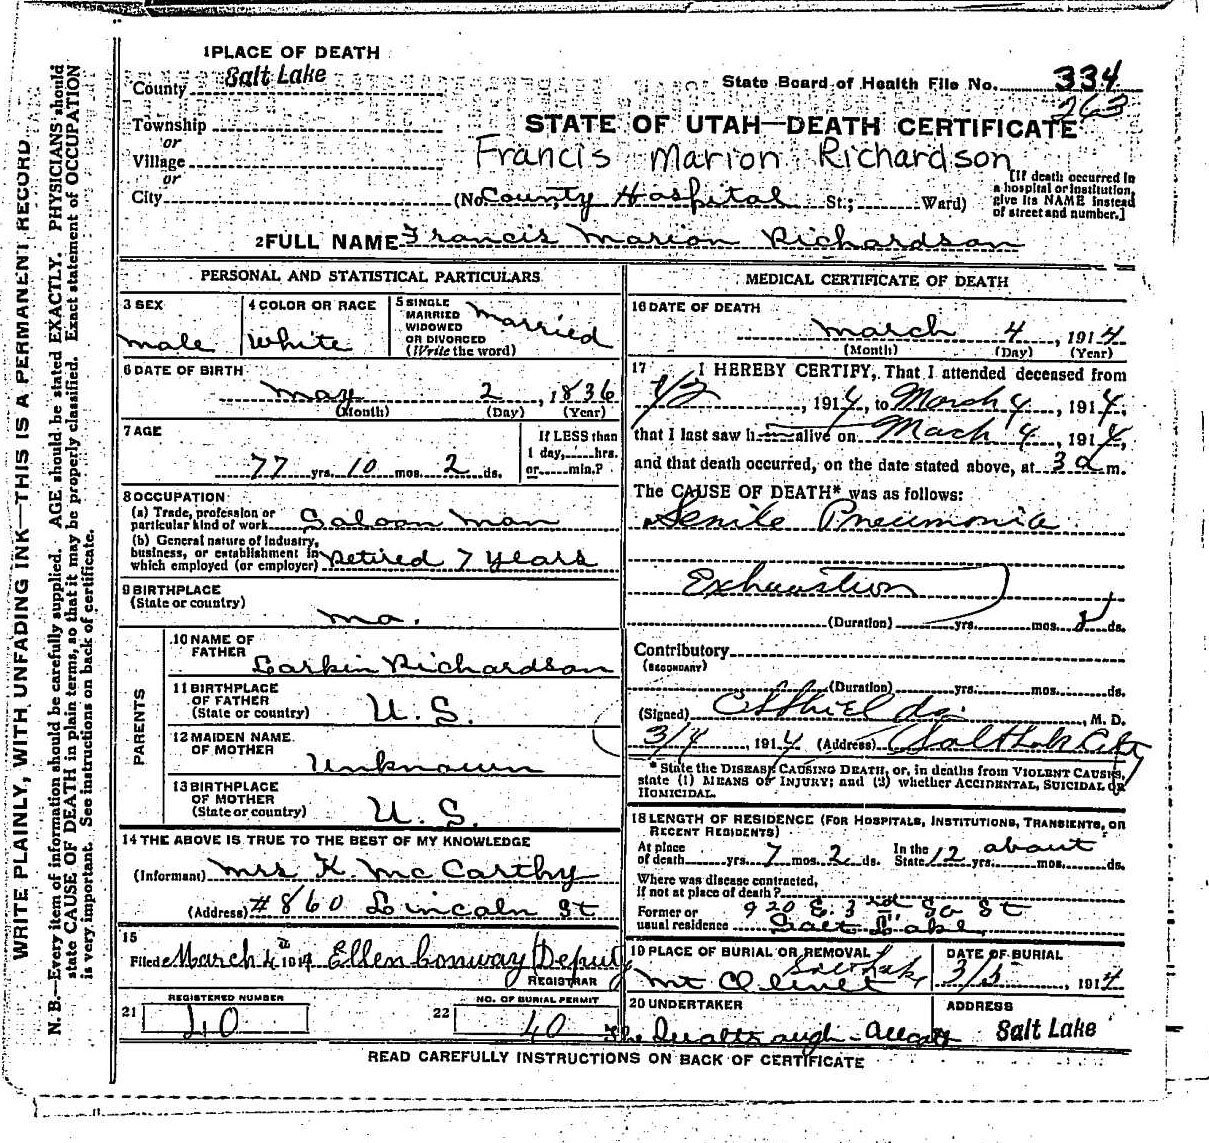 1 PLACE OF DEATH
County Salt Lake
State Board of Health File No. 334
263
Township
or
Village
or
City
STATE OF UTAH—DEATH CERTIFICATE
Francis Marion Richardson
(No. County Hospital St.; Ward)
[If death occurred in
a hospital or institution,
give its NAME instead
of street and number.]
2 FULL NAME Francis Marion Richardson
PERSONAL AND STATISTICAL PARTICULARS
3 SEX
male
4 COLOR OR RACE
White
5 SINGLE
MARRIED
WIDOWED
OR DIVORCED
(Write the word)
married
6 DATE OF BIRTH
May 2, 1836
(Month) (Day) (Year)
7 AGE
77 yrs. 10 mos. 2 ds.
If LESS than
1 day, hrs.
or min.?
8 OCCUPATION
(a) Trade, profession or
particular kind of work Saloon man
(b) General nature of industry,
business, or establishment in
which employed (or employer) Retired 7 years
9 BIRTHPLACE
(State or country)
Mo.
PARENTS
10 NAME OF
FATHER
Larkin Richardson
11 BIRTHPLACE
OF FATHER
(State or country)
U. S.
12 MAIDEN NAME
OF MOTHER
Unknown
13 BIRTHPLACE
OF MOTHER
(State or country)
U. S.
14 THE ABOVE IS TRUE TO THE BEST OF MY KNOWLEDGE
(Informant) Mrs K. McCarthy
(Address) #860 Lincoln St
15
Filed March 4th 1914 Ellen Conway Deputy
REGISTRAR
21 REGISTERED NUMBER
40
22 NO. OF BURIAL PERMIT
40
MEDICAL CERTIFICATE OF DEATH
16 DATE OF DEATH
March 4, 1914
(Month) (Day) (Year)
17 I HEREBY CERTIFY, That I attended deceased from
, 1914, to March 4, 1914,
that I last saw h alive on Mach 4, 1914,
and that death occurred, on the date stated above, at 3 a m.
The CAUSE OF DEATH* was as follows:
Senile Pneumonia
Exhaustion
(Duration) yrs. mos. ds.
Contributory
(SECONDARY)
(Duration) yrs. mos. ds.
(Signed) Shields, M. D.
3/4, 1914 (Address) Salt Lake City
* State the DISEASE CAUSING DEATH, or, in deaths from VIOLENT CAUSES,
state (1) MEANS OF INJURY; and (2) whether ACCIDENTAL, SUICIDAL or
HOMICIDAL.
18 LENGTH OF RESIDENCE (FOR HOSPITALS, INSTITUTIONS, TRANSIENTS, OR
RECENT RESIDENTS)
At place
of death yrs. 7 mos. 2 ds.
In the
State 12 yrs. about mos. ds.
Where was disease contracted,
If not at place of death?
Former or
usual residence 920 E. 3rd So St
Salt Lake
19 PLACE OF BURIAL OR REMOVAL
Mt Olivet Salt Lake
DATE OF BURIAL
3/5, 1914
20 UNDERTAKER
ADDRESS
Salt Lake
READ CAREFULLY INSTRUCTIONS ON BACK OF CERTIFICATE
WRITE PLAINLY, WITH UNFADING INK—THIS IS A PERMANENT RECORD
N. B.—Every item of information should be carefully supplied. AGE should be stated EXACTLY. PHYSICIANS should
state CAUSE OF DEATH in plain terms, so that it may be properly classified. Exact statement of OCCUPATION
is very important. See instructions on back of certificate.